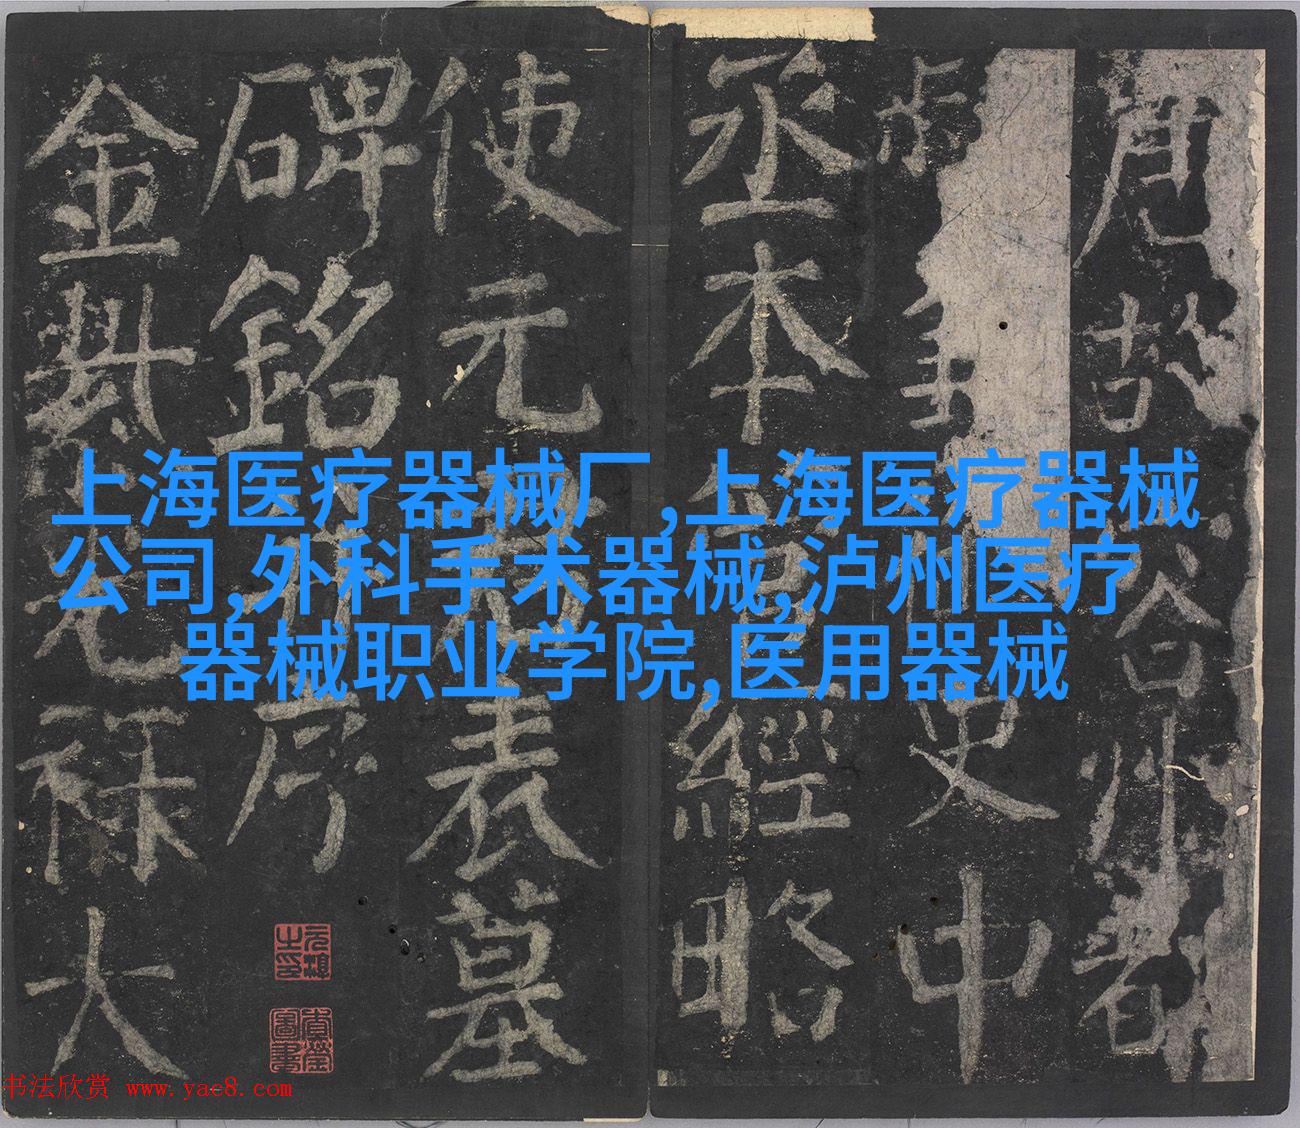 唐故容州都
史中
丞本管經略
使元君表墓
碑銘并序
金紫光祿大
上海医疗器械厂,上海医疗器械
公司,外科手术器械,泸州医疗
器械职业学院,医用器械
书法欣赏 www.yac8.com